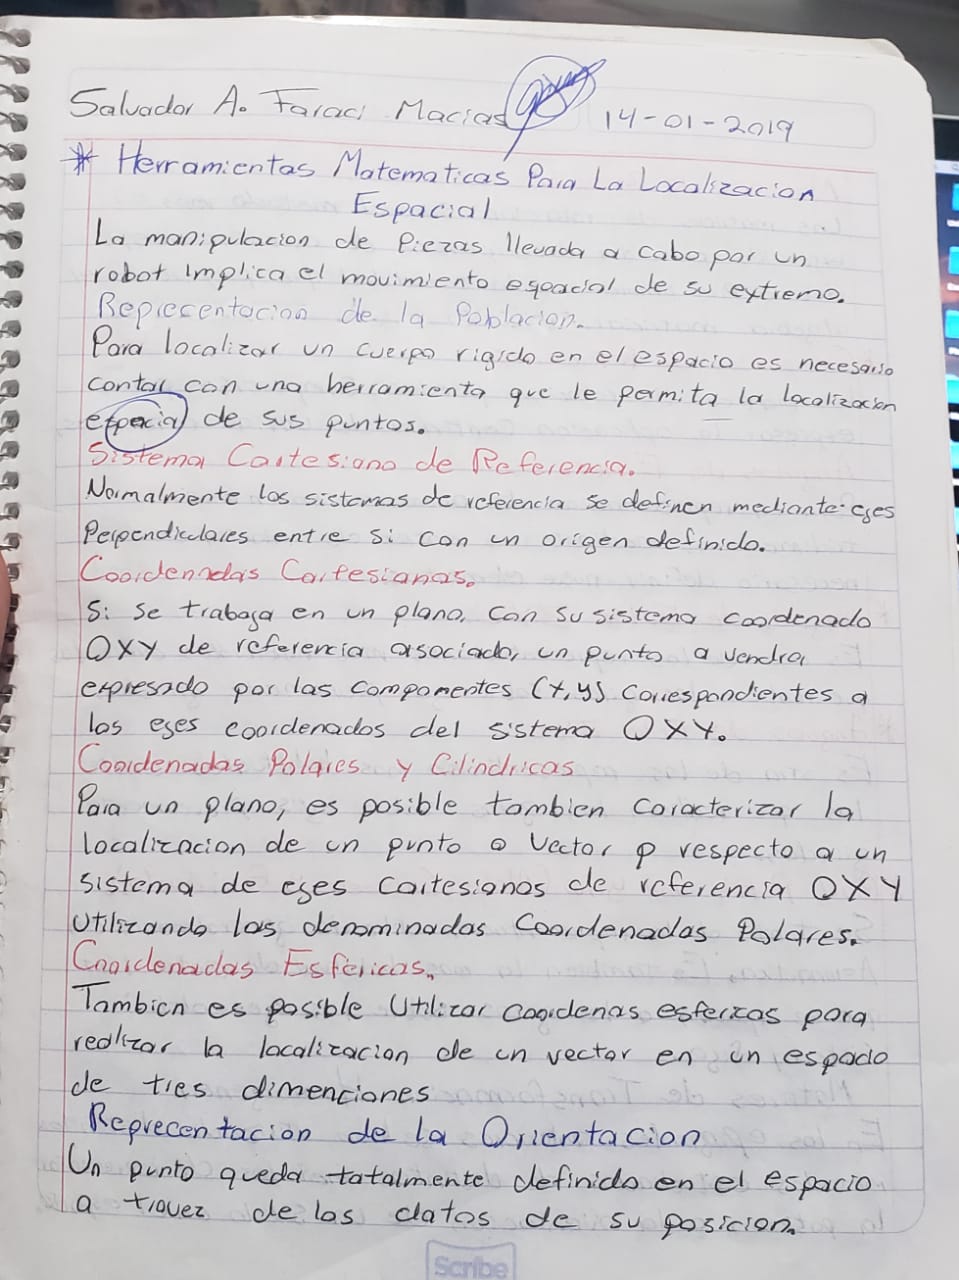 Salvador A. Faraci Macias 14-01-2019
* Herramientas Matematicas Para La Localizacion
Espacial
La manipulacion de Piezas llevada a cabo por un
robot implica el movimiento espacial de su extremo.
Reprecentacion de la Poblacion.
Para localizar un cuerpo rigido en el espacio es necesario
contar con una herramienta que le permita la localizacion
espacial de sus puntos.
Sistema Cartesiano de Referencia.
Normalmente los sistemas de referencia se definen mediante ejes
Perpendiculares entre si con un origen definido.
Coordenadas Cartesianas.
Si se trabaja en un plano, con su sistema coordenado
OXY de referencia asociado, un punto a vendra
expresado por las componentes (x,y) correspondientes a
los ejes coordenados del sistema OXY.
Coordenadas Polares y Cilindricas
Para un plano, es posible tambien caracterizar la
localizacion de un punto o Vector p respecto a un
sistema de ejes cartesianos de referencia OXY
Utilizando las denominadas Coordenadas Polares.
Coordenadas Esfericas.
Tambien es posible Utilizar coordenas esfericas para
realizar la localizacion de un vector en un espacio
de tres dimenciones
Reprecentacion de la Orientacion
Un punto queda totalmente definido en el espacio
a travez de los datos de su posicion.
Scribe